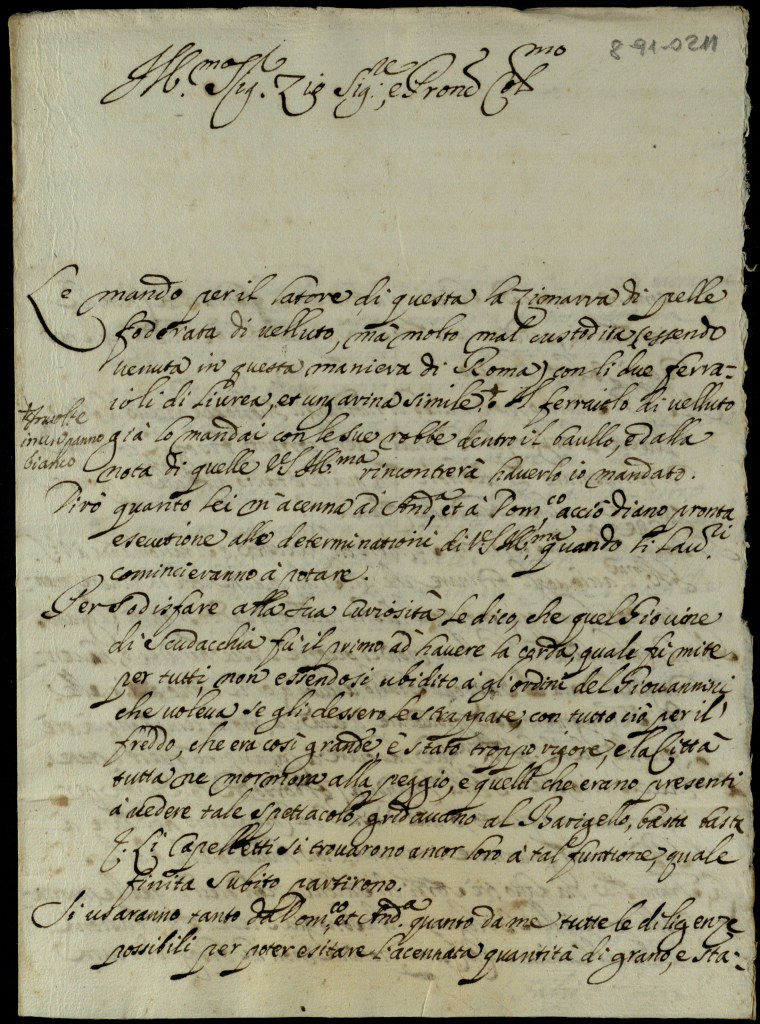 8-91-0211
Ill.mo Sig. Zio Sig.re, e Prone Col.mo
Le mando per il latore di questa la Zimarra di pelle
foderata di velluto, mà molto mal custodita (essendo
venuta in questa maniera di Roma) con li due ferra=
ioli di Livrea, et un gavina simile. † Il ferraiolo di velluto
† Involte
in un panno
bianco
già lo mandai con le sue robbe dentro il baullo, e dalla
nota di quelle VS Ill.ma rincontrerà haverlo io mandato.
Dirò quanto lei m'acenna ad And.a, et à Dom.co acciò diano pronta
esecutione alle determinationi di VS Ill.ma, quando li Lav.ri
comincieranno à potare.
Per sodisfare alla sua curiosità le dico, che quel Giovine
di Scudacchia fù il primo ad havere la corda, quale fù mite
per tutti, non essendosi ubidito à gl'ordini del Giovannini
che voleva se gli dessero le strapnate; con tutto ciò per il
freddo, che era così grande, è stato troppo rigore, e la Città
tutta ne mormora alla peggio, e quelli che erano presenti
à vedere tale spettacolo, gridavano al Barigello, basta basta
&. Li Capelletti si trovarono ancor loro à tal funtione, quale
finita subito partirono.
Si usaranno tanto da Dom.co, et And.a quanto da me tutte le diligenze
possibili per poter esitare l'acennata quantità di grano, e sta=